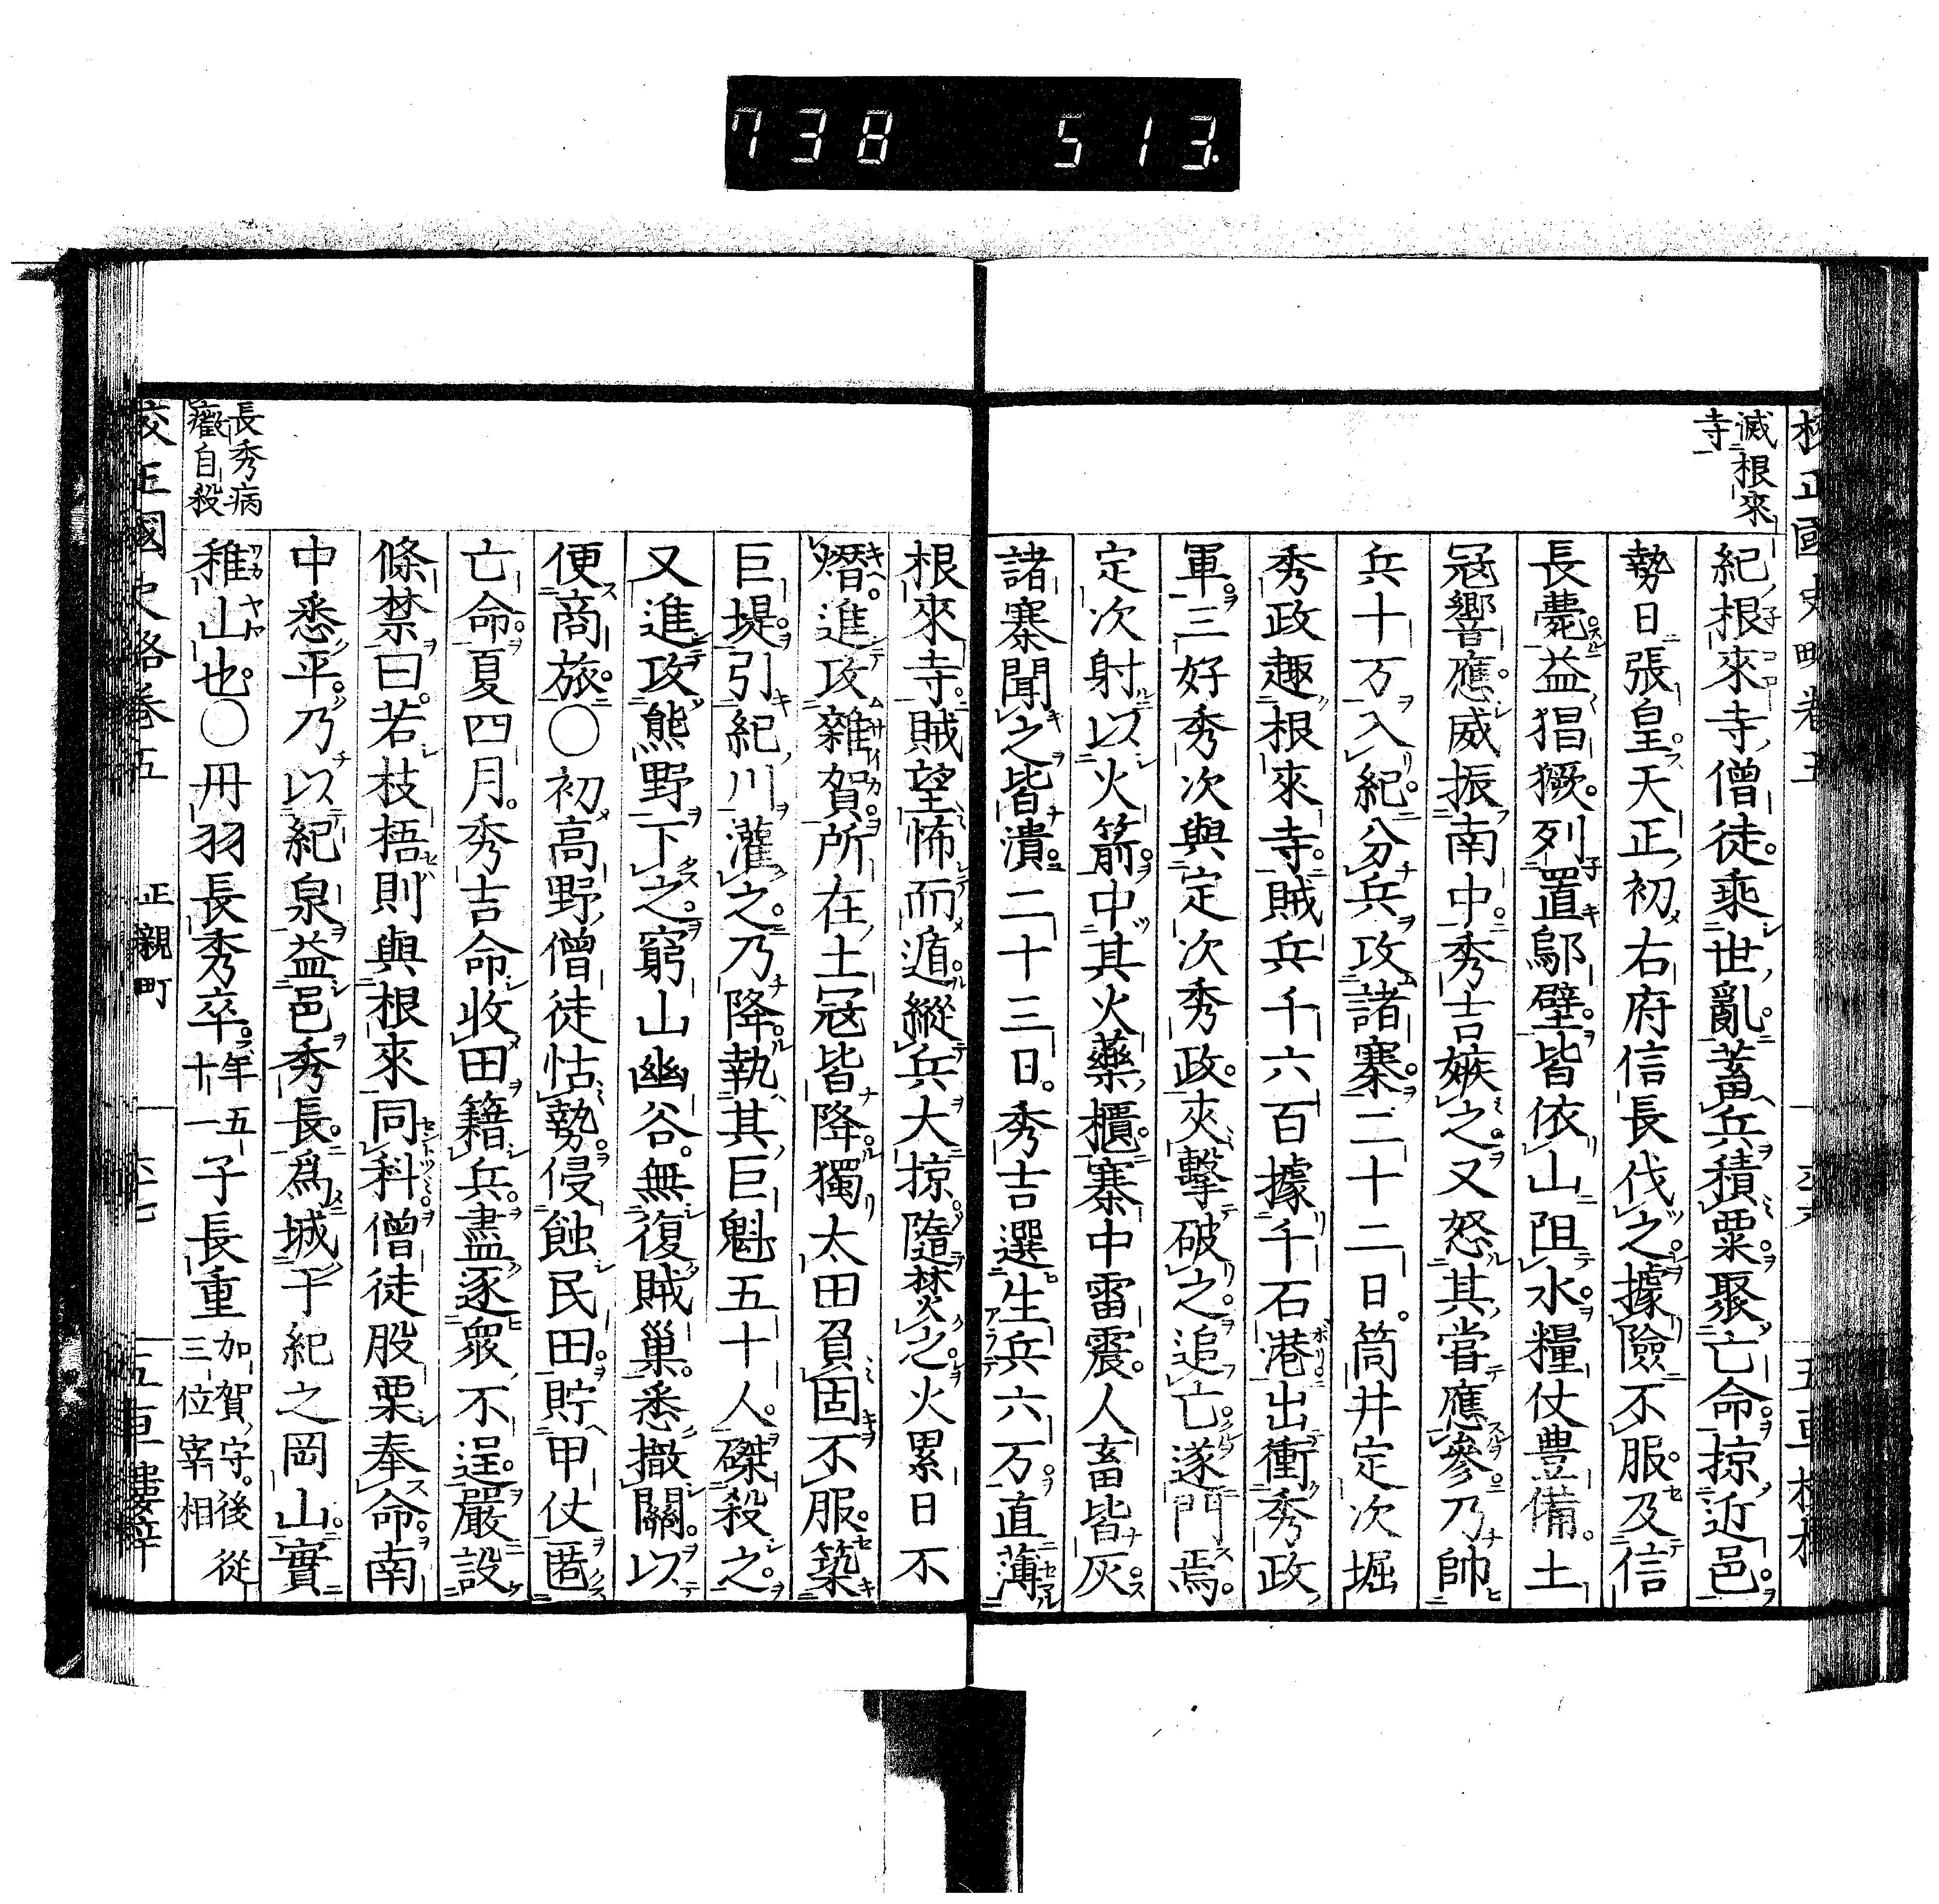 738 513
滅根來
寺
紀根來寺僧徒乘世亂蓄兵積粟聚亡命掠近邑
勢日張皇天正初右府信長伐之據險不服及信
長薨益猖獗列置鄔壁皆依山阻水糧仗豊備土
冦響應威振南中秀吉嫉之又怒其嘗應參乃帥
兵十万入紀分兵攻諸寨二十二日筒井定次堀
秀政趣根來寺賊兵千六百據千石港出衝秀政
軍三好秀次與定次秀政夾擊破之追亡遂門焉
定次射以火箭中其火藥櫃寨中雷震人畜皆灰
諸寨聞之皆潰二十三日秀吉選生兵六万直薄
根來寺賊望怖而遁縱兵大掠隳焚之火累日不
熸進攻雜賀所在土冦皆降獨太田負固不服築
巨堤引紀川灌之乃降執其巨魁五十人磔殺之
又進攻熊野下之窮山幽谷無復賊巢悉撤關以
便商旅〇初高野僧徒怙勢侵蝕民田貯甲仗匿
亡命夏四月秀吉命收田籍兵盡逐衆不逞嚴設
條禁曰若枝梧則與根來同科僧徒股栗奉命南
中悉平乃以紀泉益邑秀長爲城于紀之岡山實
稚山也〇丹羽長秀卒年五十一子長重加賀守後從三位宰相
長秀病
癥自殺
校正國史略卷五 正親町